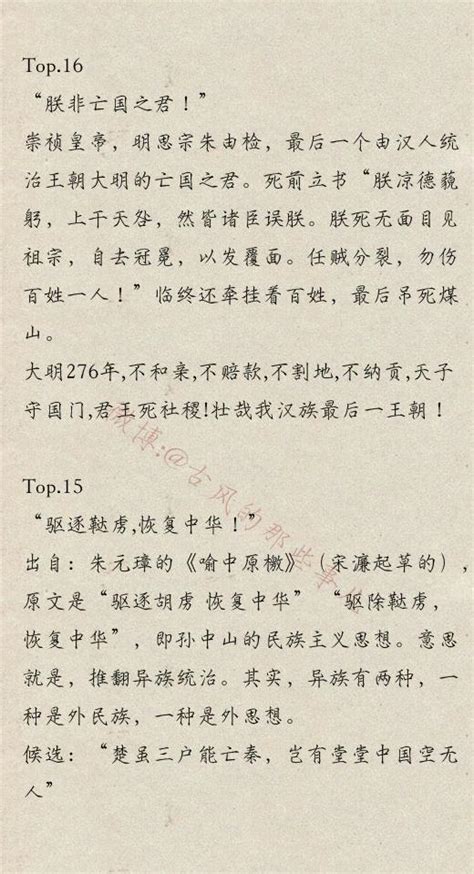 Top.16
“朕非亡国之君！”
崇祯皇帝，明思宗朱由检，最后一个由汉人统
治王朝大明的亡国之君。死前立书“朕凉德藐
躬，上干天咎，然皆诸臣误朕。朕死无面目见
祖宗，自去冠冕，以发覆面。任贼分裂，勿伤
百姓一人！”临终还牵挂着百姓，最后吊死煤
山。
大明276年,不和亲,不赔款,不割地,不纳贡,天子
守国门,君王死社稷!壮哉我汉族最后一王朝！
微博:@古风的那些事儿
Top.15
“驱逐鞑虏,恢复中华！”
出自：朱元璋的《喻中原檄》（宋濂起草的），
原文是“驱逐胡虏 恢复中华” “驱除鞑虏，
恢复中华”，即孙中山的民族主义思想。意思
就是，推翻异族统治。其实，异族有两种，一
种是外民族，一种是外思想。
候选：“楚虽三户能亡秦，岂有堂堂中国空无
人”